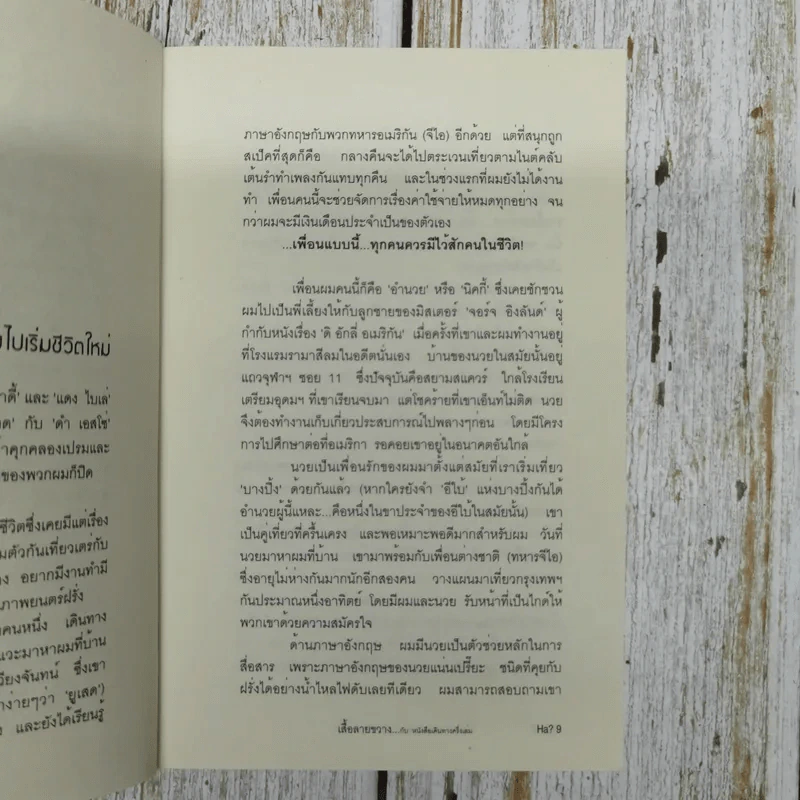 ไปเริ่มชีวิตใหม่
าดี้' และ 'แดง ไบเล่'
กับ 'ดำ เอสโซ่'
าคุกคลองเปรมและ
ของพวกผมก็ปิด
ชีวิตซึ่งเคยมีแต่เรื่อง
มตัวกันเที่ยวเตร่กับ
อยากมีงานทำมี
ภาพยนตร์ฝรั่ง
คนหนึ่ง เดินทาง
แวะมาหาผมที่บ้าน
วียงจันทน์ ซึ่งเขา
กง่ายๆว่า 'ยูเสด')
และยังได้เรียนรู้
ภาษาอังกฤษกับพวกทหารอเมริกัน (จีไอ) อีกด้วย แต่ที่สนุกถูก
สเป็คที่สุดก็คือ กลางคืนจะได้ไปตระเวนเที่ยวตามไนต์คลับ
เต้นรำทำเพลงกันแทบทุกคืน และในช่วงแรกที่ผมยังไม่ได้งาน
ทำ เพื่อนคนนี้จะช่วยจัดการเรื่องค่าใช้จ่ายให้หมดทุกอย่าง จน
กว่าผมจะมีเงินเดือนประจำเป็นของตัวเอง
...เพื่อนแบบนี้...ทุกคนควรมีไว้สักคนในชีวิต!
เพื่อนผมคนนี้ก็คือ 'อำนวย' หรือ 'นิคกี้' ซึ่งเคยชักชวน
ผมไปเป็นพี่เลี้ยงให้กับลูกชายของมิสเตอร์ 'จอร์จ อิงลันด์' ผู้
กำกับหนังเรื่อง 'ดิ อักลี่ อเมริกัน' เมื่อครั้งที่เขาและผมทำงานอยู่
ที่โรงแรมรามาสีลมในอดีตนั่นเอง บ้านของนวยในสมัยนั้นอยู่
แถวจุฬาฯ ซอย 11 ซึ่งปัจจุบันคือสยามสแควร์ ใกล้โรงเรียน
เตรียมอุดมฯ ที่เขาเรียนจบมา แต่โชคร้ายที่เขาเอ็นท์ไม่ติด นวย
จึงต้องทำงานเก็บเกี่ยวประสบการณ์ไปพลางๆก่อน โดยมีโครง
การไปศึกษาต่อที่อเมริกา รอคอยเขาอยู่ในอนาคตอันใกล้
นวยเป็นเพื่อนรักของผมมาตั้งแต่สมัยที่เราเริ่มเที่ยว
'บางปิ้ง' ด้วยกันแล้ว (หากใครยังจำ 'อีไบ้' แห่งบางปิ้งกันได้
อำนวยผู้นี้แหละ...คือหนึ่งในขาประจำของอีไบ้ในสมัยนั้น) เขา
เป็นคู่เที่ยวที่ครื้นเครง และพอเหมาะพอดีมากสำหรับผม วันที่
นวยมาหาผมที่บ้าน เขามาพร้อมกับเพื่อนต่างชาติ (ทหารจีไอ)
ซึ่งอายุไม่ห่างกันมากนักอีกสองคน วางแผนมาเที่ยวกรุงเทพฯ
กันประมาณหนึ่งอาทิตย์ โดยมีผมและนวย รับหน้าที่เป็นไกด์ให้
พวกเขาด้วยความสมัครใจ
ด้านภาษาอังกฤษ ผมมีนวยเป็นตัวช่วยหลักในการ
สื่อสาร เพราะภาษาอังกฤษของนวยแนนเปรี๊ยะ ชนิดที่คุยกับ
ฝรั่งได้อย่างน้ำไหลไฟดับเลยทีเดียว ผมสามารถสอบถามเขา
เสื้อลายขวาง...กับ หนังสือเดินทางครึ่งเล่ม Ha? 9